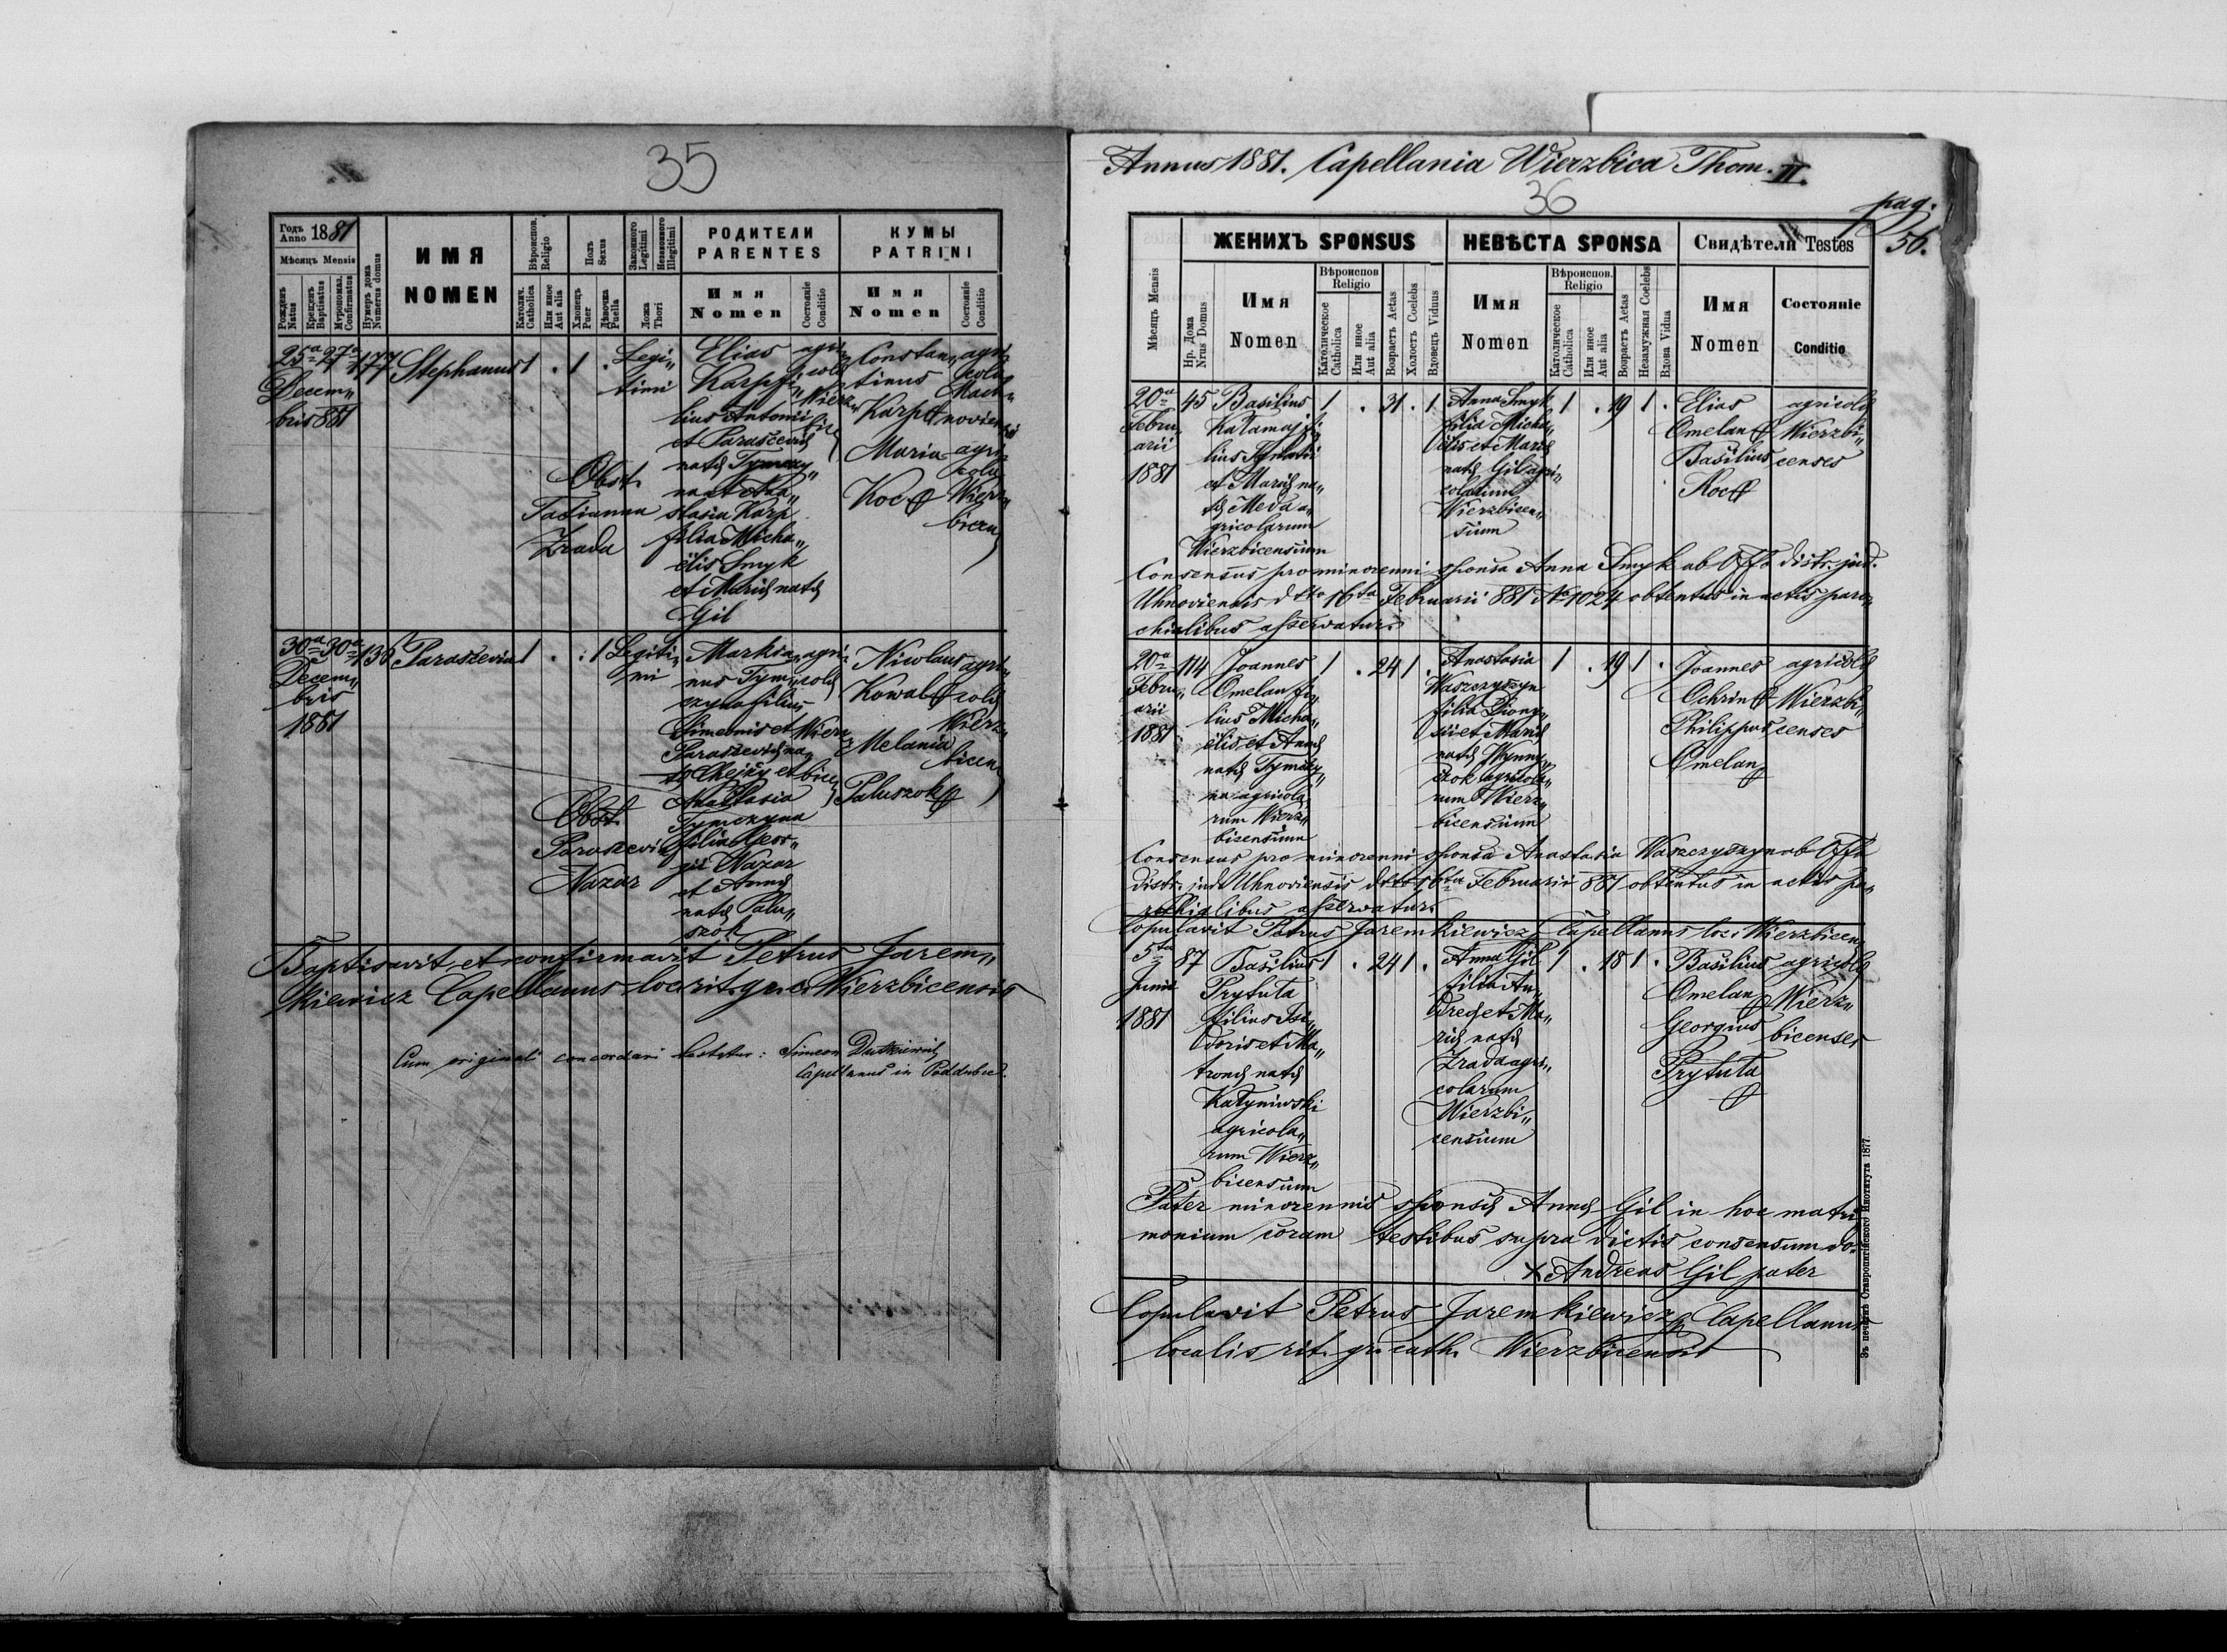 35
Годъ Anno 1881
Мѣсяцъ Mensis
Рожденъ Natus
Крещенъ Baptisatus
Мvропомаз. Confirmatus
Нумеръ дома Numerus domus
ИМЯ
NOMEN
Вѣроиспов. Religio
Католич. Catholica
Или иное Aut alia
Полъ Sexus
Хлопецъ Puer
Дѣвочка Puella
Законного Legitimi
Незаконного Illegitimi
Ложа Thori
РОДИТЕЛИ
PARENTES
Имя Nomen
Состояніе Conditio
КУМЫ
PATRINI
Имя Nomen
Состояніе Conditio
25a 27a 177 Stephanus 1 . 1 . Legi„
Decem„
bris 881
timi
Elias
Karp fi„
lius Antonii
et Parascevae
natae Tymczy„
na et Ana„
stasia Karp
filia Micha„
ëlis Smyk
et Mariae natae
Gil
Constan„
tinus
Karp
Maria
Koc
agri„
colae
Obst.
Tatianna
Zrada
30a 30a 136 Parascevia 1 . . 1 Legiti„
mi
Decem„
bris
1881
Markia„
nus Tym„
czyna filius
Simeonis et
Parasceviae na„
tae Chejzy et
Anastasia
Tymczyna
filia Geor„
gii Nazar
et Annae
natae Palu„
szok
Nicolaus
Kowal
Melania
Paluszok
Obst.
Parascevia
Nazar
Baptisavit et confirmavit Petrus Jarem„
kiewicz Capellanus loc. rit. gr. c. Wierzbicensis
Cum originali concordari testatur: Simeon
Capellanus in Poddubce.
Annus 1881. Capellania Wierzbica Thom. II.
36
pag.
56.
Мѣсяцъ Mensis
Нр. Дома Nrus Domus
ЖЕНИХЪ SPONSUS
Имя
Nomen
Вѣроиспов Religio
Католическое Catholica
Или иное Aut alia
Возрастъ Aetas
Холостъ Coelebs
Вдовецъ Viduus
НЕВѢСТА SPONSA
Имя
Nomen
Вѣроиспов. Religio
Католическое Catholica
Или иное Aut alia
Возрастъ Aetas
Незамужная Coelebs
Вдова Vidua
Свидѣтели Testes
Имя
Nomen
Состояніе
Conditio
20a
Febru„
arii
1881
45
Basilius
Kałamaj fi„
lius Ignatii
et Mariae na„
tae Meda a„
gricolarum
Wierzbicensium
1 . 31 . 1
Anna Smyk
filia Micha„
ëlis et Mariae
natae Gil agri„
colarum
Wierzbicen„
sium
1 . 19 1 .
Elias
Omelan
Basilius
Koc
agricolae
Wierzbi„
censes
Consensus pro minorenni sponsa Anna Smyk ab Offo distr. jud.
Uhnoviensis dtto 16ta Februarii 881 No 1024 obtentus in actis paro„
chialibus asservatur.
20a
Febru„
arii
1881
114
Joannes
Omelan fi„
lius Micha„
ëlis et Annae
natae Tymczy„
na agricola„
rum Wierz„
bicensium
1 . 24 1 .
Anastasia
Waszczyszyn
filia Diony„
sii et Mariae
natae
agricola„
rum Wierz„
bicensium
1 . 19 1 .
Joannes
Ochrin
Philippus
Omelan
agricolae
Wierzbi„
censes
Consensus pro minorenni sponsa Anastasia Waszczyszyn ab Offo
distr. jud. Uhnoviensis dtto 16ta Februarii 881 obtentus in actis pa„
rochialibus asservatur.
Copulavit Petrus Jaremkiewicz Capellanus loc. Wierzbicen
5ta
Junii
1881
87
Basilius
Prytuła
filius Isi„
doris et Ma„
tronae natae
Kałyniwski
agricola„
rum Wierz„
bicensium
1 . 24 1 .
Anna Gil
filia An„
dreae et Ma„
riae natae
Zrada agri„
colarum
Wierzbi„
censium
1 . 18 1 .
Basilius
Omelan
Georgius
Prytuła
agricolae
Wierz„
bicenses
Pater minorennis sponsae Annae Gil in hoc matri
monium coram testibus supra dictis consensum do.
x Andreas Gil pater
Copulavit Petrus Jaremkiewicz Capellanus
localis rit. gr. cath. Wierzbicensis
Зъ печатнѣ Ставропигійского Института 1877.